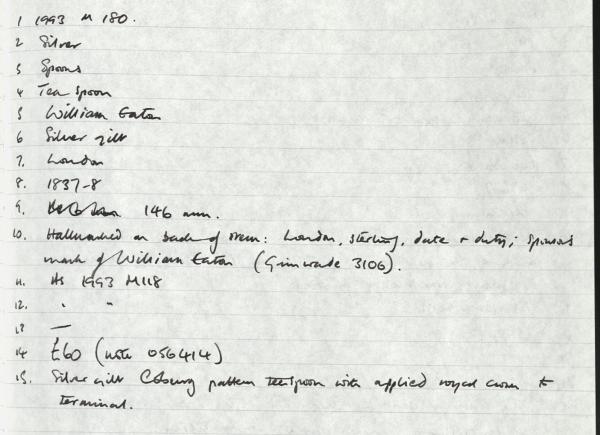 1 1993 M 180.
2 Silver
3 Spoons
4 Tea spoon
5 William Eaton
6 Silver gilt
7. London
8. 1837-8
9. 146 mm.
10. Hallmarked on back of stem: London, sterling, date + duty; sponsors
mark of William Eaton (Grimwade 3106).
11. As 1993 M118
12. " "
13 —
14 £60 (note 056414)
15. Silver gilt Coburg pattern teaspoon with applied royal crown to
terminal.